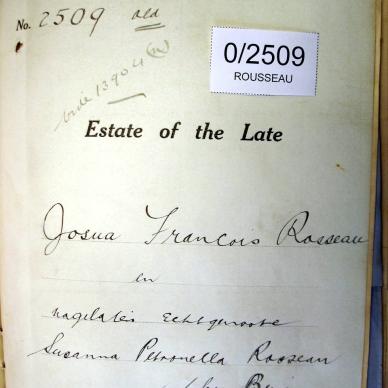 No. 2509 old
0/2509
ROUSSEAU
vide 13904 (N)
Estate of the Late
Josua Francois Rosseau
en
nagelate Echtgenoote
Susanna Petronella Rosseau